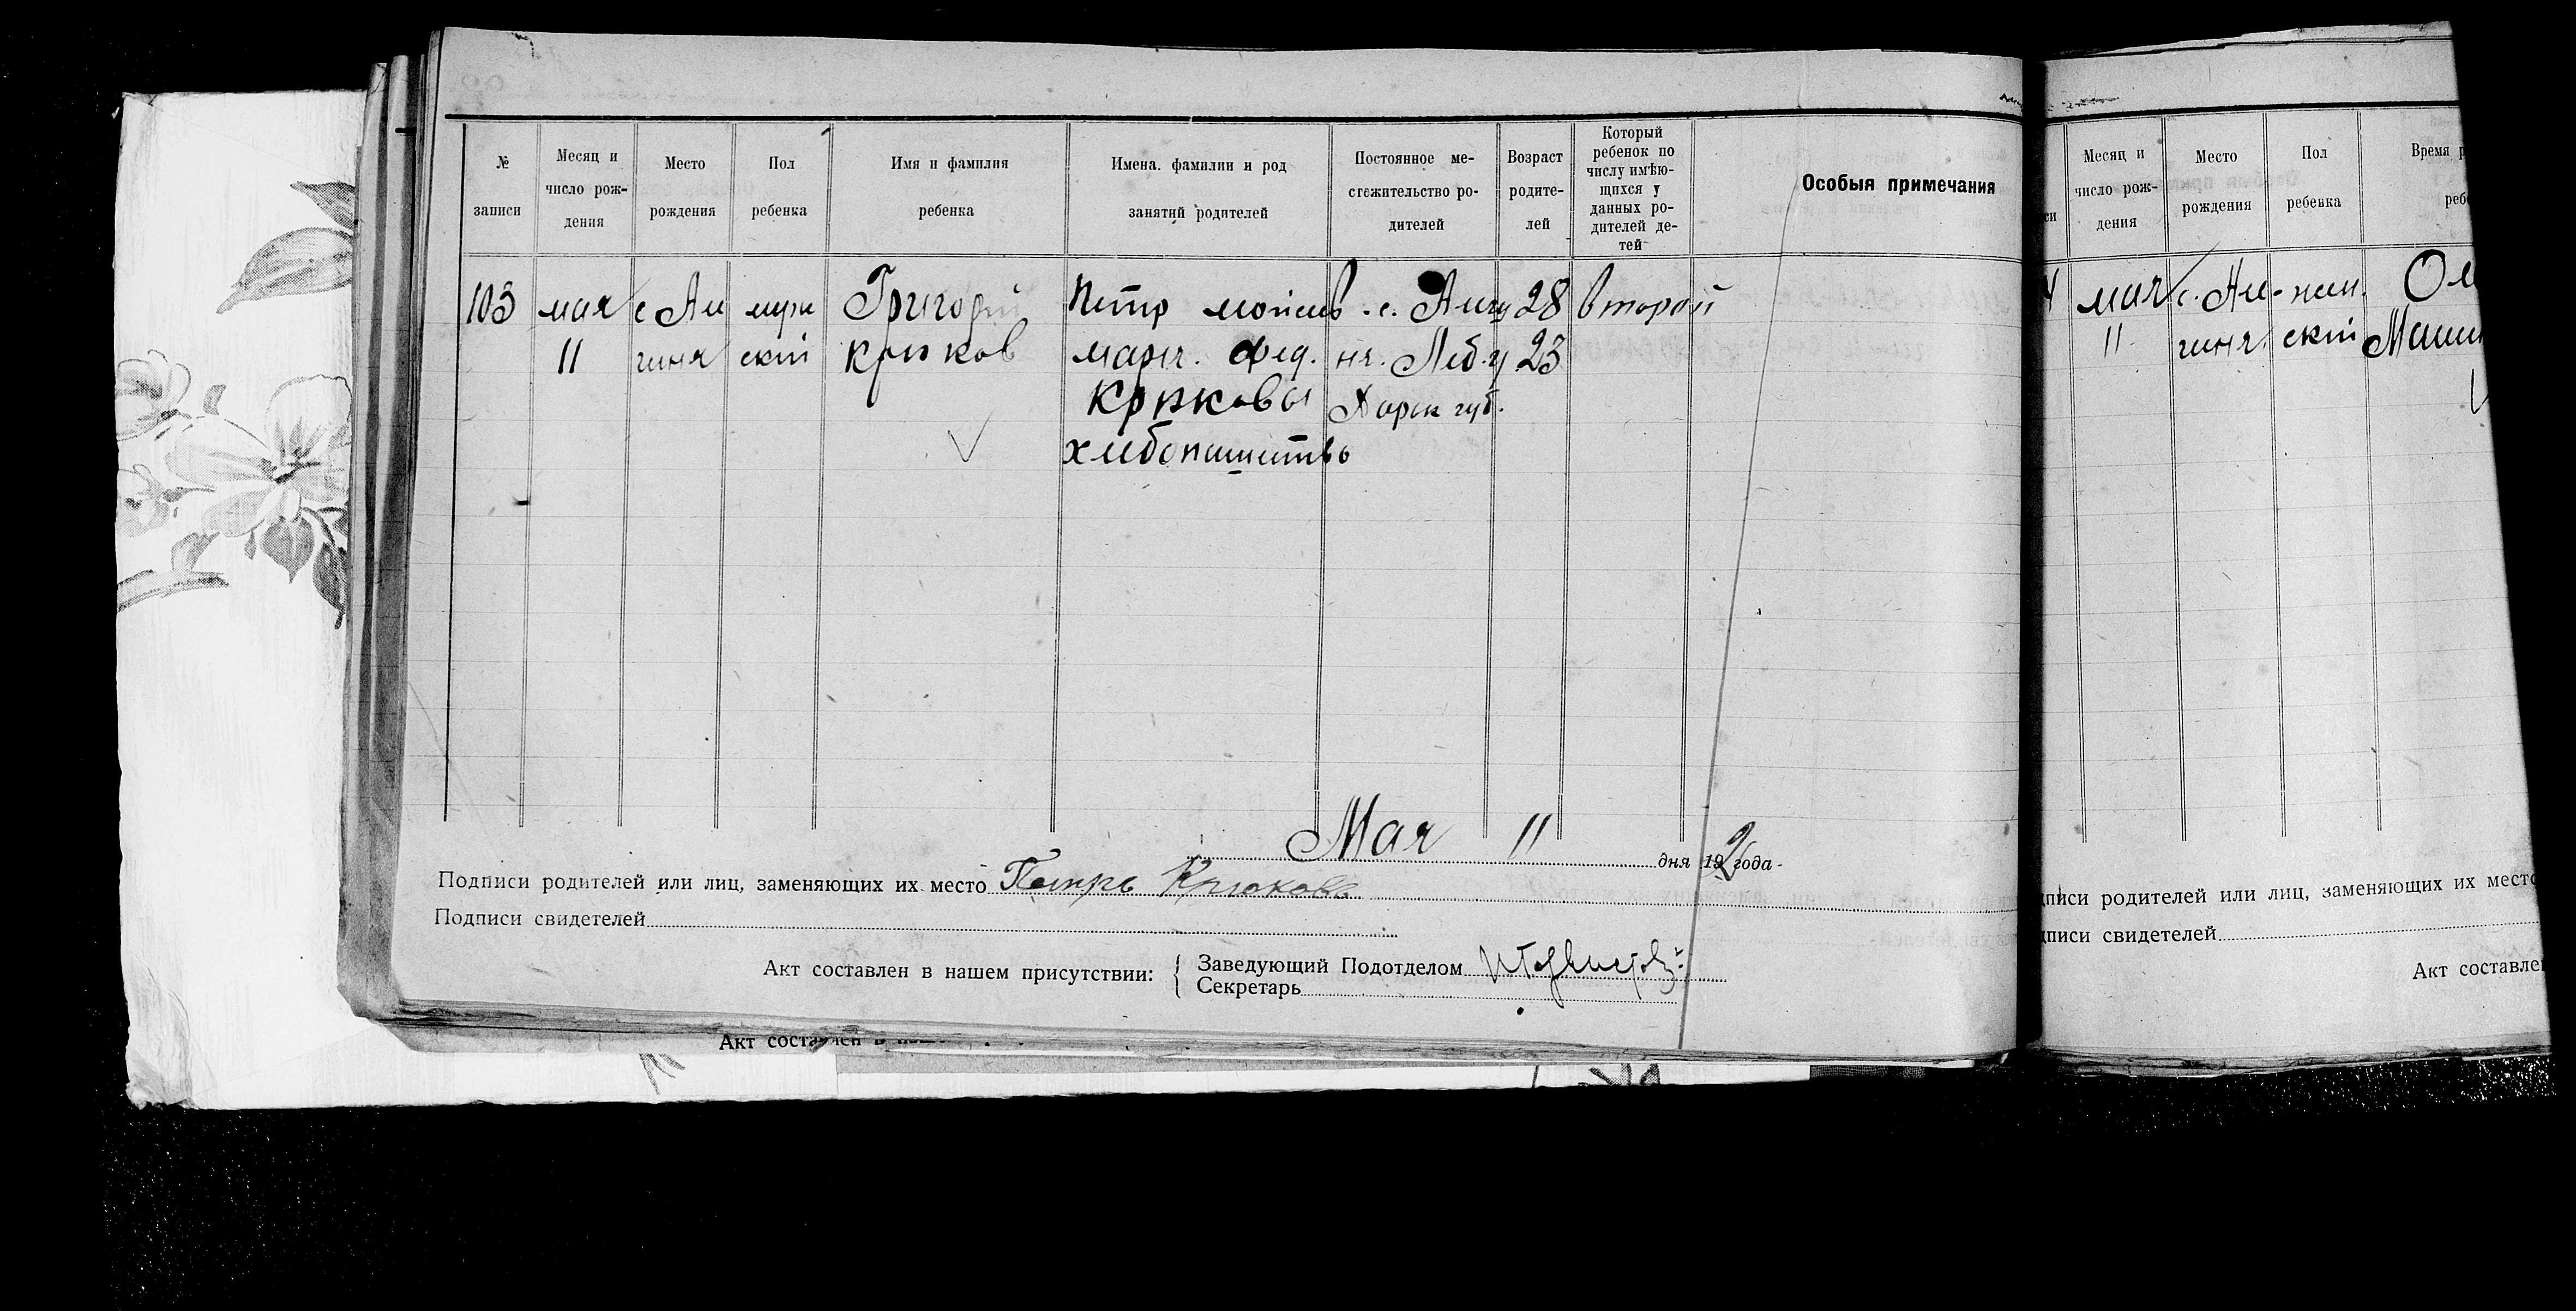 № записи
Месяц и число рождения
Место рождения
Пол ребенка
Имя и фамилия ребенка
Имена. фамилии и род занятий родителей
Постоянное местежительство родителей
Возраст родителей
Который ребенок по числу имѣющихся у данных родителей детей
Особыя примечания
103 мая с Ам мужс Григорий Петр Моисеев. с. 28 второй
11 ский Крюков Фед. Леб. у 23
Крюковы Харьк губ.
хлебопашество
Мая 11 дня 192 года
Подписи родителей или лиц, заменяющих их место Петръ Крюковъ
Подписи свидетелей
Акт составлен в нашем присутствии: { Заведующий Подотделом
Секретарь
Акт составлен в
Месяц и число рождения
Место рождения
Пол ребенка
Время р
ребе
мая с. жен.
11 ский
писи родителей или лиц, заменяющих их место
писи свидетелей
Акт составле